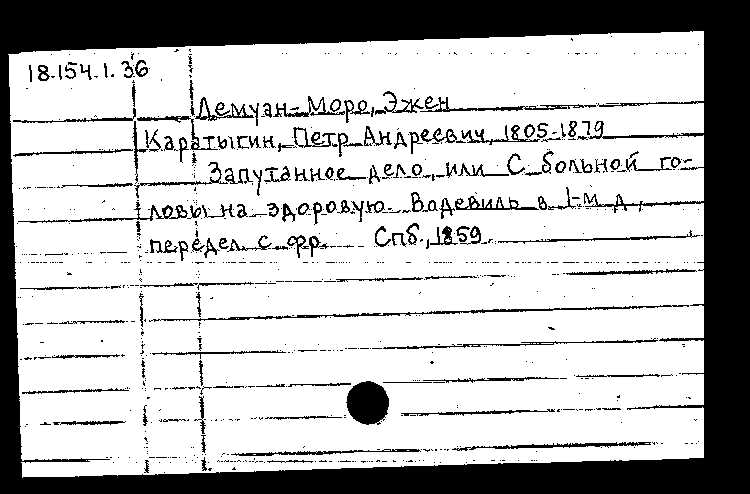 18.154.1.36
Лемуан-Моро, Эжен
Каратыгин, Петр Андреевич, 1805-1879
Запутанное дело, или С больной го-
ловы на здоровую. Водевиль в 1-м д.,
передел. с фр. Спб., 1859.